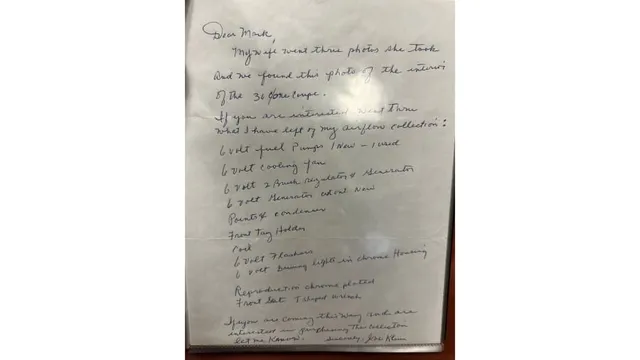 Dear Mark,
My wife went thru photos she took
And we found this photo of the interior
of the 36 Coupe.
If you are interested. I went thru
what I have left of my airflow collection:
6 volt fuel Pumps 1 New - 1 used
6 volt cooling fan
6 volt 2 Brush regulator & Generator
6 volt Generator about New
Points & condenser
Front Tag Holder
6 volt Flashers
6 volt Driving lights in chrome Housing
Reproduction chrome plated
Front Seat T shaped wrench
If you are coming this way and are
interested in purchasing the collection
let me know. Sincerely, Joe